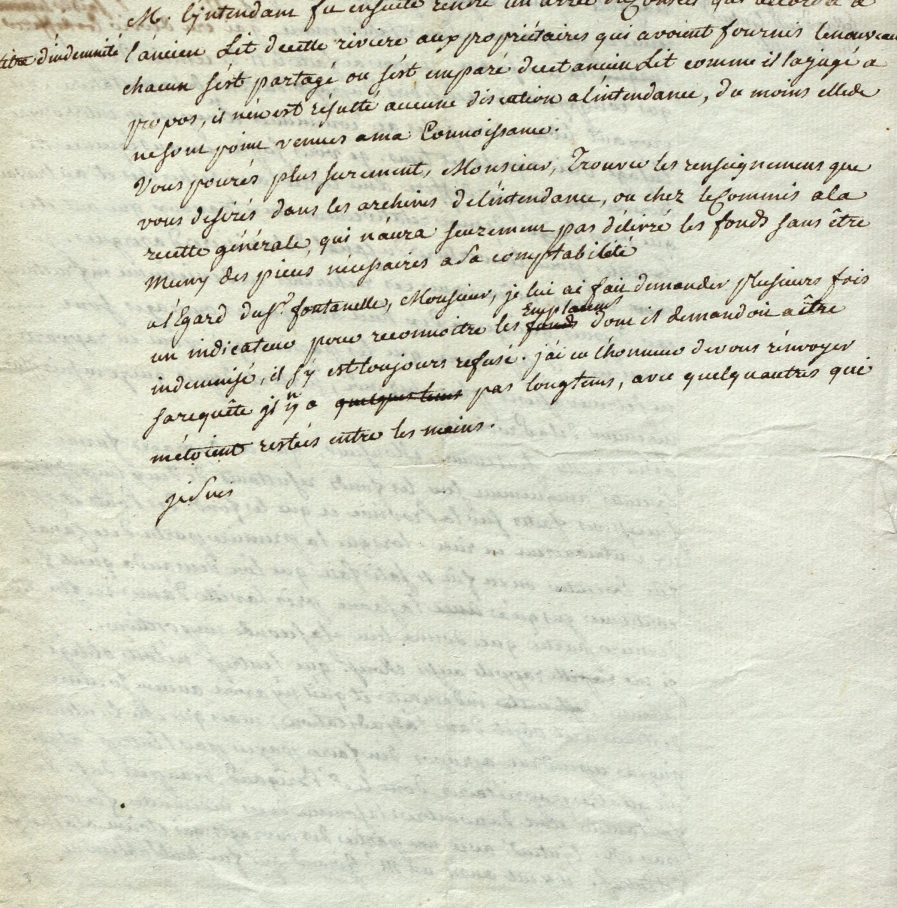 M. l'intendant fit ensuite rendre un arrêt du Conseil qui accorda à
titre d'indemnité l'ancien Lit de cette riviere aux proprietaires qui avoient fournis le nouveau
chacun s'est partagé ou s'est emparé de cet ancien Lit comme il l'a jugé a
propos, il n'en est résulté aucune discution a l'intendance, du moins elle de
ne sont point venues a ma Connoissance.
Vous pourés plus surement, Monsieur, Trouver les renseignemens que
vous desirés dans les archives de l'intendance, ou chez le Commis a la
recette générale, qui n'aura seurement pas délivré les fonds sans être
muny des pieces nécessaires a sa comptabilité
a l'Egard du Sr. fontanelle, Monsieur, je lui ai fait demander plusieurs fois
un indicateur pour reconnoitre les fonds Emplacemens dont il demandoit a être
indemnisé, il s'y est toujours refusé. j'ai eu l'honneur de vous renvoyer
sa requête il n'y a quelques tems pas longtems, avec quelqu'autres qui
m'étoient restées entre les mains.
je suis